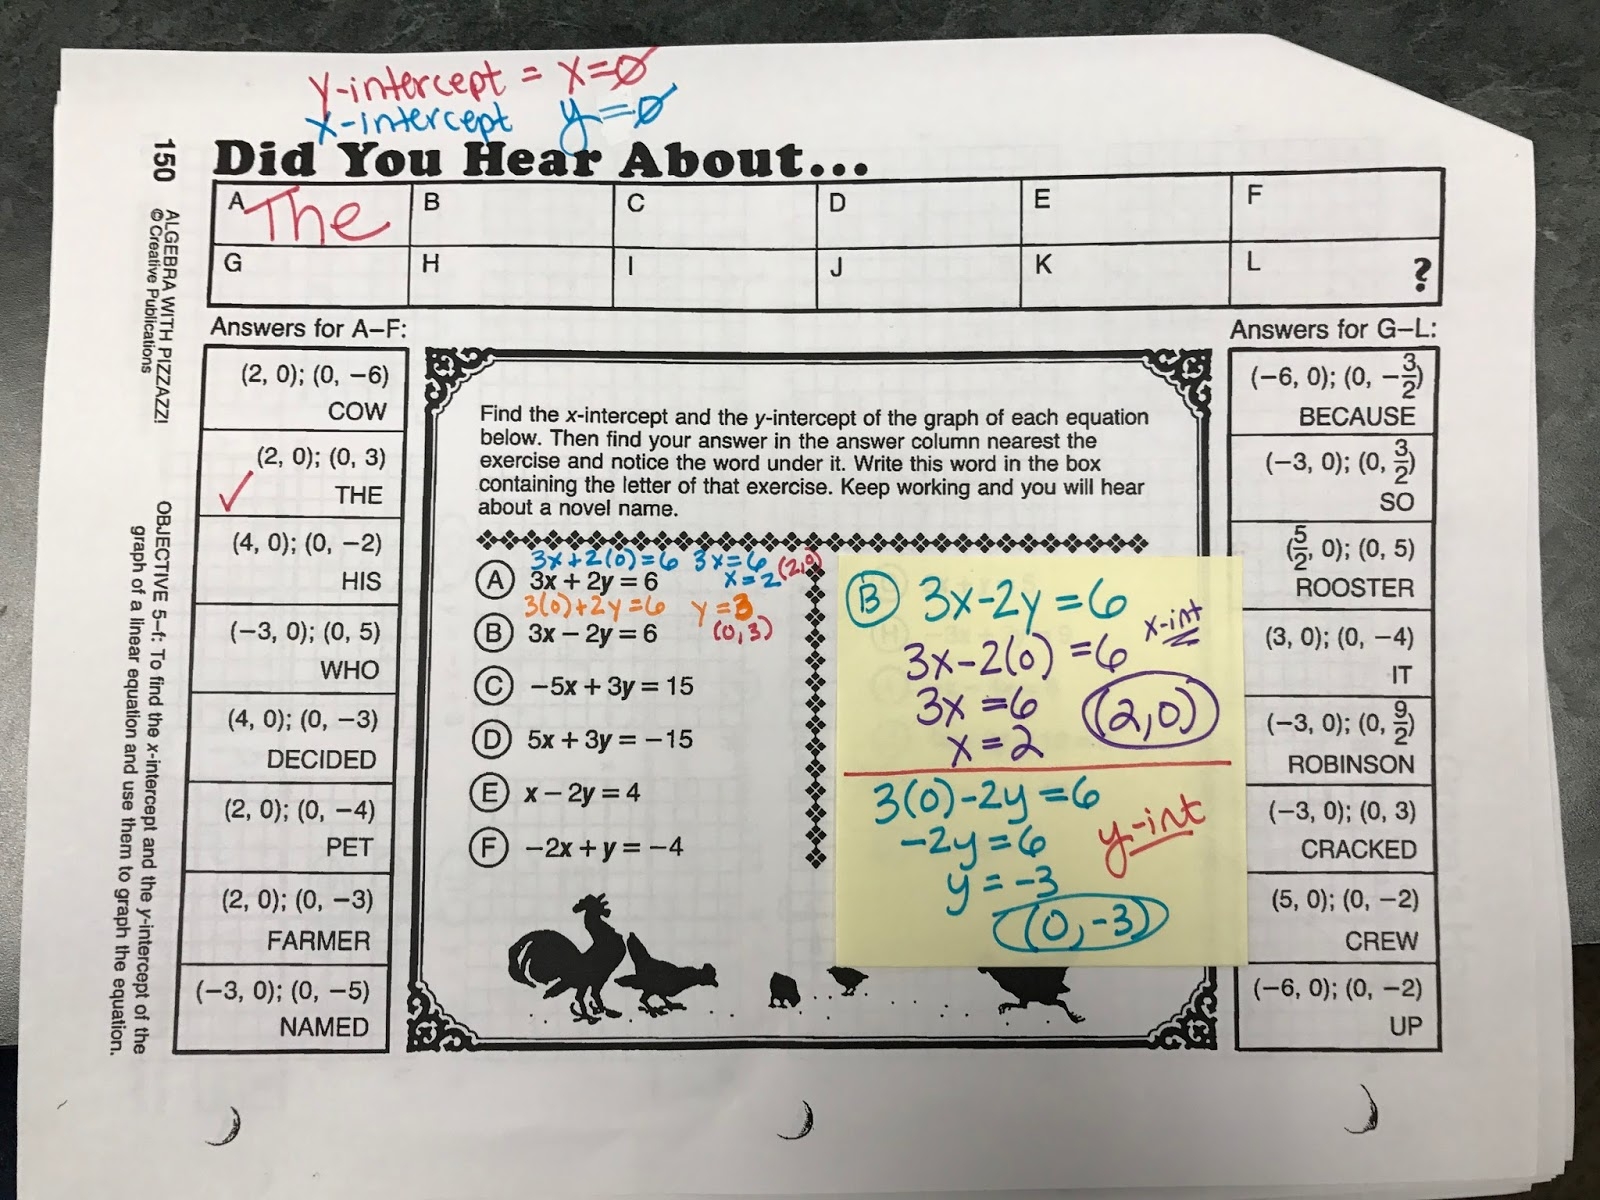 y-intercept = x=0
x-intercept y=0
Did You Hear About...
A The
B
C
D
E
F
G
H
I
J
K
L ?
150 ALGEBRA WITH PIZZAZZ!
© Creative Publications
OBJECTIVE 5–f: To find the x-intercept and the y-intercept of the
graph of a linear equation and use them to graph the equation.
Answers for A–F:
(2, 0); (0, −6)
COW
(2, 0); (0, 3)
✓ THE
(4, 0); (0, −2)
HIS
(−3, 0); (0, 5)
WHO
(4, 0); (0, −3)
DECIDED
(2, 0); (0, −4)
PET
(2, 0); (0, −3)
FARMER
(−3, 0); (0, −5)
NAMED
Find the x-intercept and the y-intercept of the graph of each equation
below. Then find your answer in the answer column nearest the
exercise and notice the word under it. Write this word in the box
containing the letter of that exercise. Keep working and you will hear
about a novel name.
3x+2(0)=6 3x=6 (2,0)
A 3x + 2y = 6 x=2
3(0)+2y=6 y=3
B 3x − 2y = 6 (0,3)
C −5x + 3y = 15
D 5x + 3y = −15
E x − 2y = 4
F −2x + y = −4
B 3x-2y=6
3x-2(0)=6 x-int
3x=6 (2,0)
x=2
3(0)-2y=6
-2y=6 y-int
y=-3
(0,-3)
Answers for G–L:
(−6, 0); (0, −3/2)
BECAUSE
(−3, 0); (0, 3/2)
SO
(5/2, 0); (0, 5)
ROOSTER
(3, 0); (0, −4)
IT
(−3, 0); (0, 9/2)
ROBINSON
(−3, 0); (0, 3)
CRACKED
(5, 0); (0, −2)
CREW
(−6, 0); (0, −2)
UP